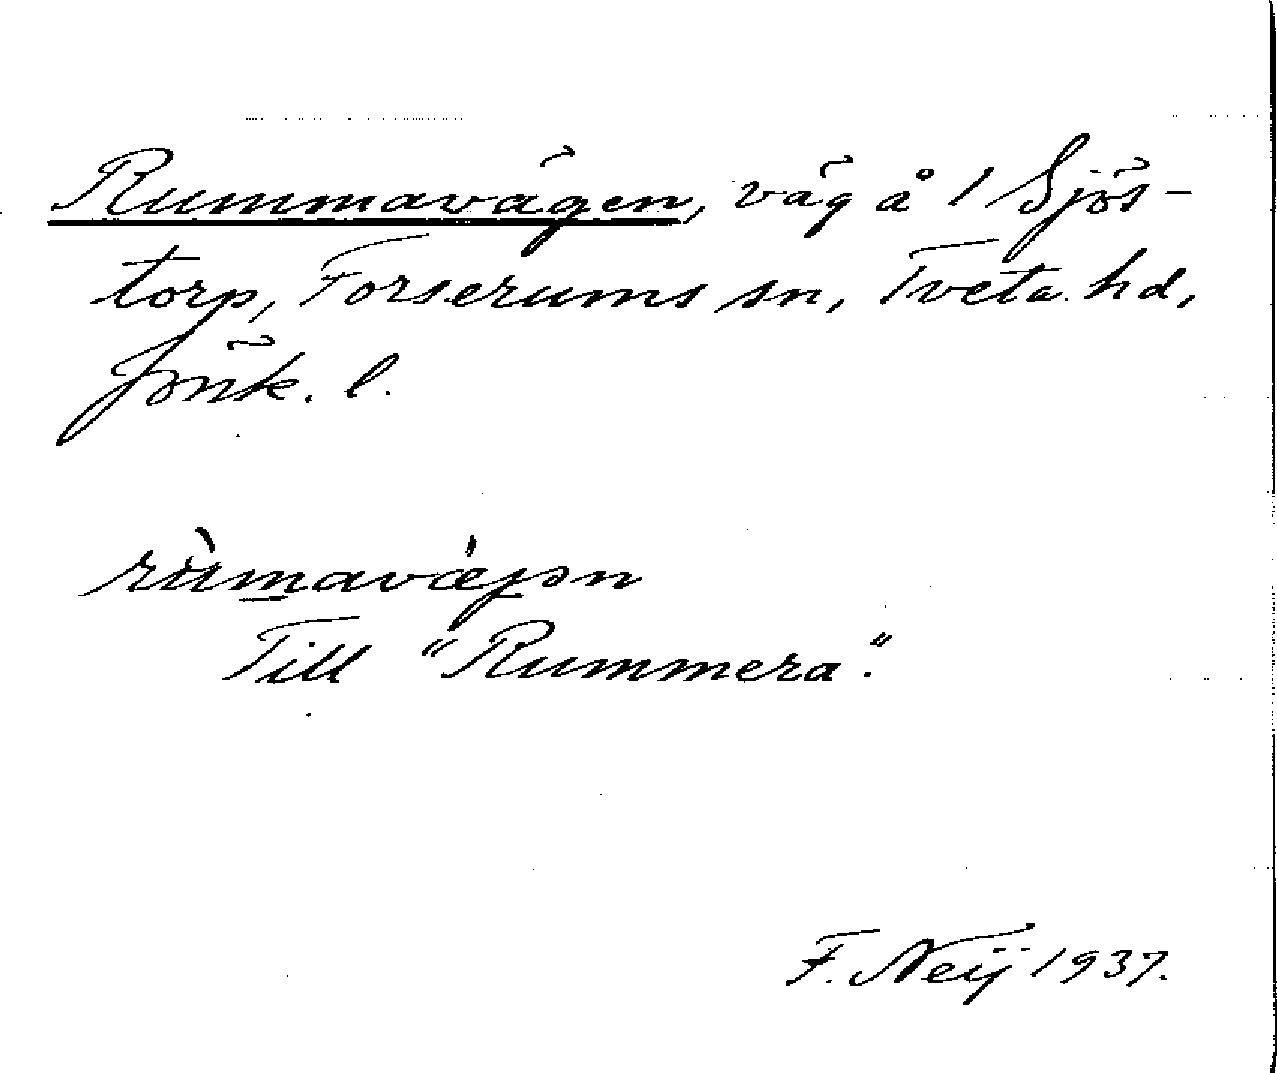 Rummavägen, väg å 1 Sjös-
torp, Forserums sn, Tveta hd,
Jönk. l.
rùmavǽjən
Till "Rummera".
F. Neij 1937.